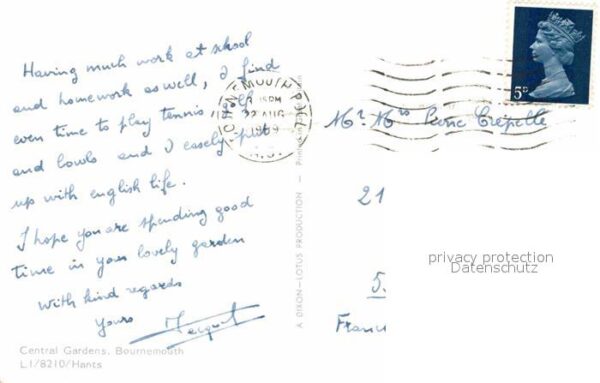 Having much work at school
and homework as well, I find
even time to play tennis, golf
and bowls and I easely put
up with english life.
I hope you are spending good
time in your lovely garden
With kind regards
Yours
Central Gardens, Bournemouth
L1/8210/Hants
A DIXON–LOTUS PRODUCTION
BOURNEMOUTH
15 PM
22 AUG
1969
5D
Mr Mrs
21
5.
France
privacy protection
Datenschutz